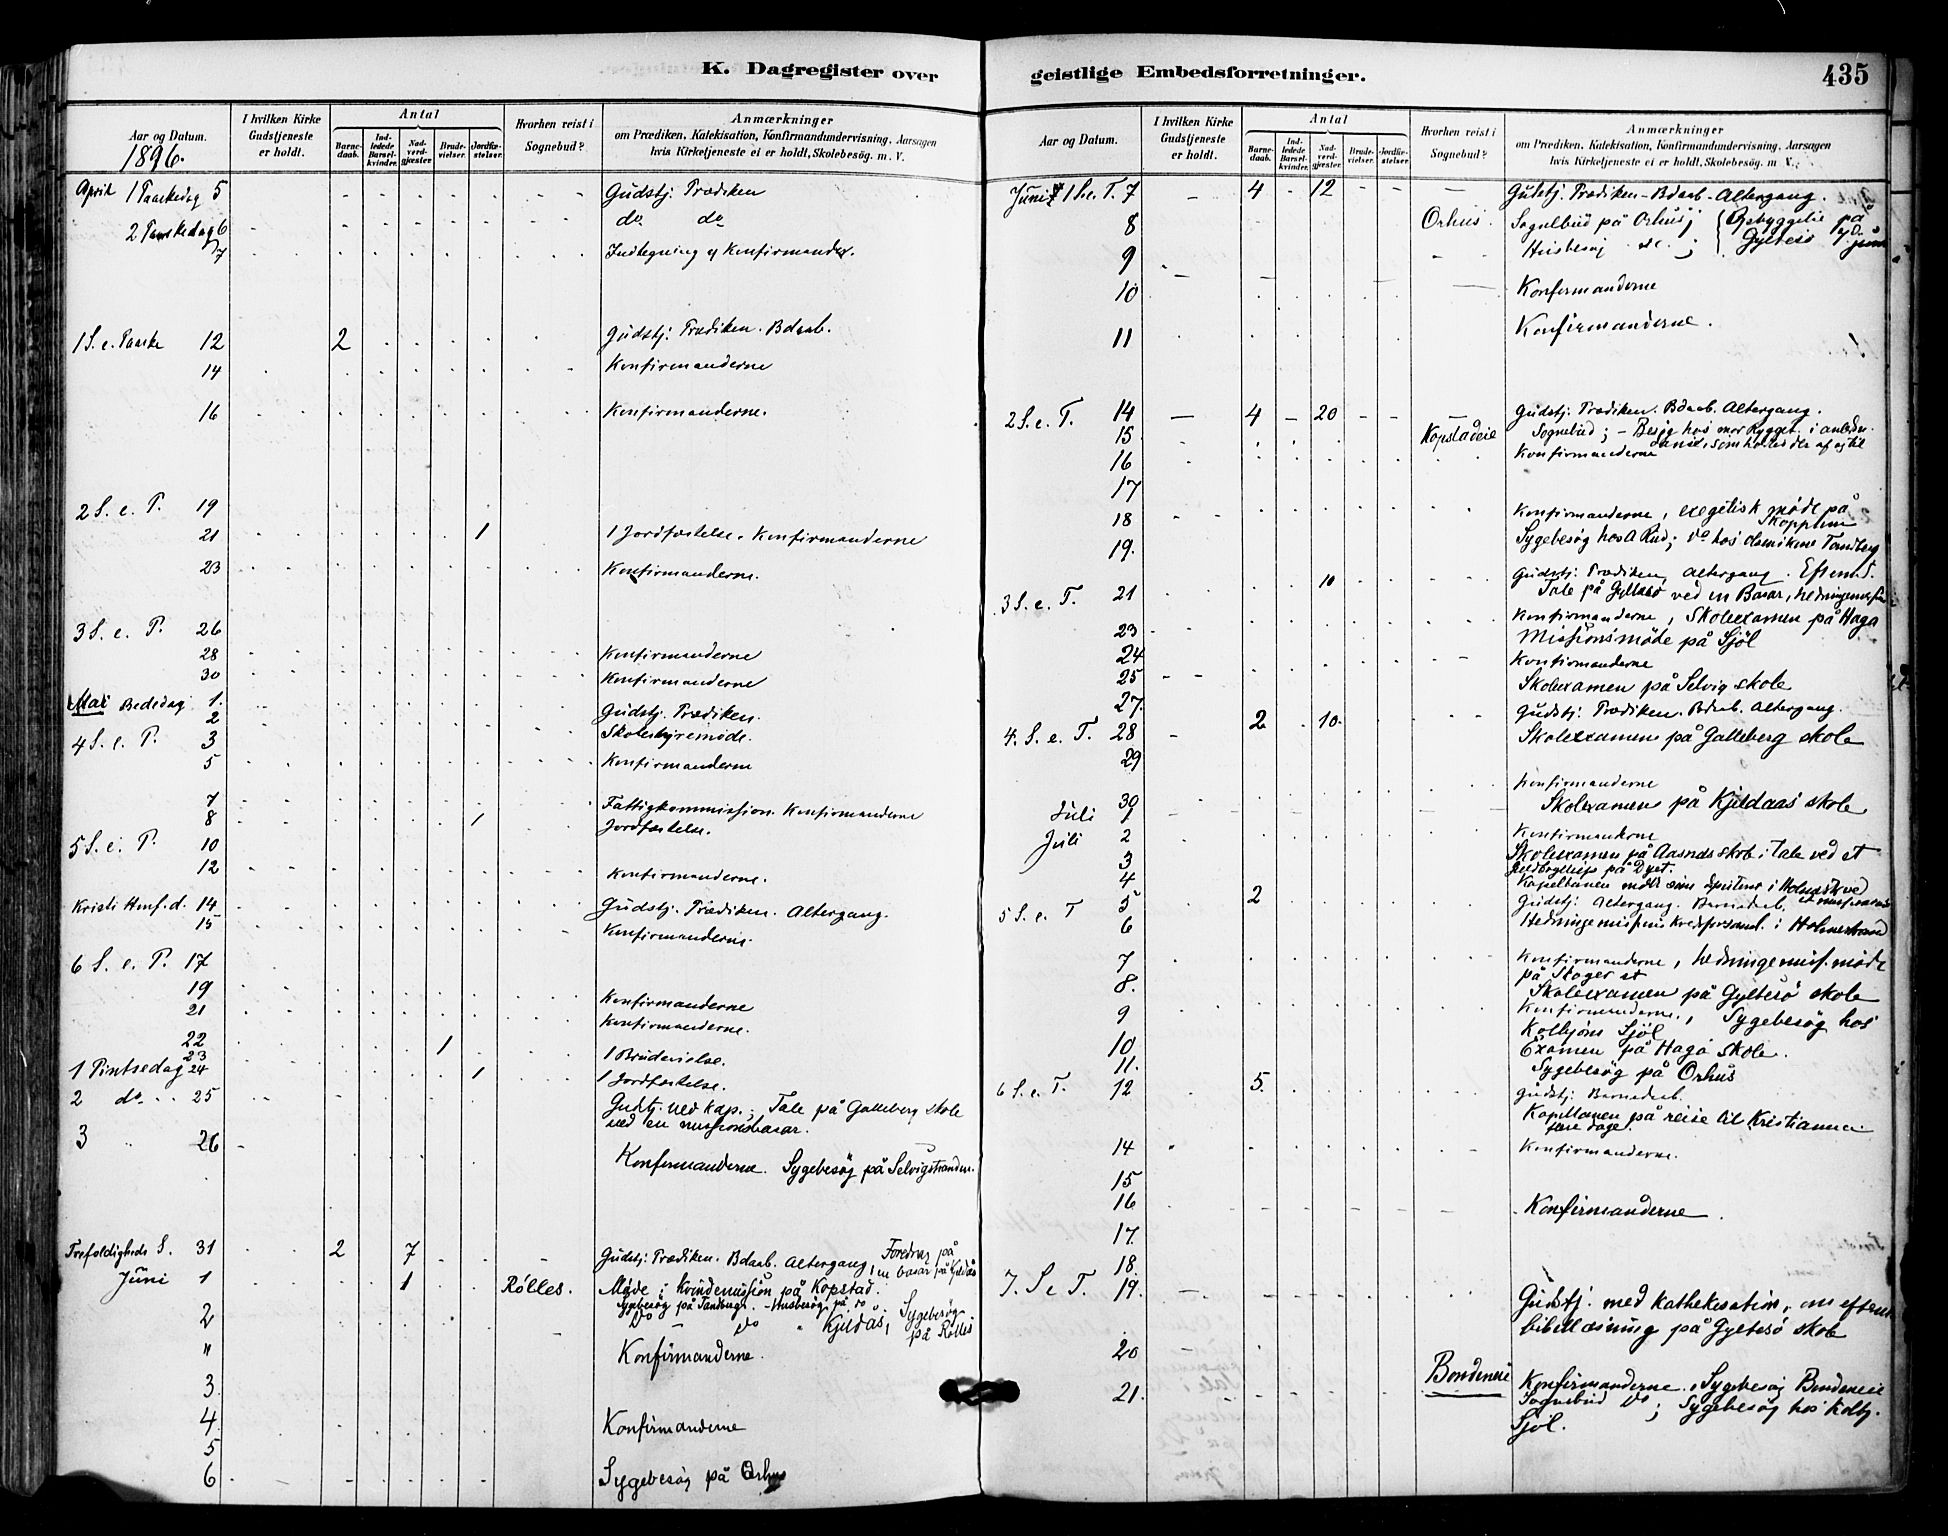 K. Dagregister over
Aar og Datum.
1896.
I hvilken Kirke Gudstjeneste er holdt.
Antal
Barnedaab.
Indledede Barselkvinder.
Nadverdgjester
Brudevielser.
Jordfæstelser.
Hvorhen reist i Sognebud?
Anmærkninger
om Prædiken, Katekisation, Konfirmandundervisning, Aarsagen
hvis Kirketjeneste ei er holdt, Skolebesøg. m. V.
April 1 Paaskedag 5 Gudstj. Prædiken
2 Paaskedag 6 do do
7 Indtegning af Konfirmander.
1 S. e. Paaske 12 2 Gudstj. Prædiken. Bdaab.
14 Konfirmanderne
16 Konfirmanderne.
2 S. e. P. 19
21 1 1 Jordfæstelse. Konfirmanderne
23 Konfirmanderne.
3 S. e. P. 26
28 Konfirmanderne
30 Konfirmanderne
Mai Bededag 1. Gudstj. Prædiken.
2 Skolestyremøde.
4 S. e. P. 3
5 Konfirmanderne
7 Fattigkommission. Konfirmanderne
8 1 Jordfæstelse.
5 S. e. P. 10
12 Konfirmanderne.
Kristi Hmf. d. 14 Gudstj. Prædiken. Altergang.
15 Konfirmanderne.
6 S. e. P. 17
19 Konfirmanderne
21 Konfirmanderne.
22 1 1 Brudevielse.
23
1 Pintsedag 24 1 1 Jordfæstelse.
2 do 25 Gudstj. ved kap.; Tale på Galleberg skole
ved en missionsbasar.
3 " 26 Konfirmanderne. Sygebesøg på Selvigstranden.
Trefoldigheds S. 31 2 7 Gudstj. Prædiken. Bdaab. Altergang, Foredrag på
en basar på Kjeldås
Juni 1 1 Rølles. Møde i kvindemission på Kopstad.
Sygebesøg på Tandberg. - Husbesøg på do
2 Do - Do " Kjeldås, Sygebesøg
på Rølles
" Konfirmanderne.
3
4 Konfirmanderne
5
6 Sygebesøg på Orhus
geistlige Embedsforretninger.
435
Aar og Datum.
I hvilken Kirke Gudstjeneste er holdt.
Antal
Barnedaab.
Indledede Barselkvinder.
Nadverdgjester
Brudevielser.
Jordfæstelser.
Hvorhen reist i Sognebud?
Anmærkninger
om Prædiken, Katekisation, Konfirmandundervisning, Aarsagen
hvis Kirketjeneste ei er holdt, Skolebesøg. m. V.
Juni 1 S. e. T. 7 4 12 Gudstj. Prædiken - Bdaab - Altergang.
8 Orhus. Sognebud på Orhus; Bebyggelse på
9 Husbesøg do.; Gyltesö
10 Konfirmanderne
11 Konfirmanderne.
2 S. e. T. 14 4 20 Gudstj. Prædiken. Bdaab. Altergang.
15 Kopstadeie Sognebud; - Besøg hos mor Rygget. i anledn.
dans, som holdes der af og til
16 Konfirmanderne
17
18 Konfirmanderne, exegetisk møde på
Skoppum
19. Sygebesøg hos A Rud; do hos Tandberg
3 S. e. T. 21 10 Gudstj. Prædiken, Altergang. Efterm.
Tale på Gyltesö ved en Basar, hedningemis.
23 Konfirmanderne, Skoleexamen på Haga
24 Missionsmøde på Sjöl
25 Konfirmanderne
27 Skolexamen på Selvig skole
4. S. e. T. 28 2 10 Gudstj. Prædiken. Bdaab. Altergang.
29 Skolexamen på Galleberg skole
30 Konfirmanderne
Juli 1 Skolexamen på Kjeldaas skole
Juli 2 Konfirmanderne
3 Skolexamen på Aasnæs skole; tale ved et
på Dyet.
4 Kapellanen i Holmestr. ved
5 S. e. T 5 2 Gudstj. Altergang. Barnedaab.
6 Hedningemissions kredsforsaml. i Holmestrand
7 Konfirmanderne, hedningemis. møde
på Skoger st
8. Skoleexamen på Gyltesö skole
9 Konfirmanderne, Sygebesøg hos
Kolbjörn Sjöl
10 Examen på Haga skole.
11. Sygebesøg på Orhus
6 S. e. T. 12 5. Gudstj. Barnedaab.
Kapellanen på reise til Kristiania
dage.
14 Konfirmanderne.
15
16 Konfirmanderne.
17.
18.
7. S. e T. 19. Gudstj. med kathekesation, om efterm.
bibellæsning på Gyltesö skole
20
21. Bondeneie Konfirmanderne, Sygebesøg Bondeneie
Sognebud Do; Sygebesøg hos Kolbj.
Sjöl.